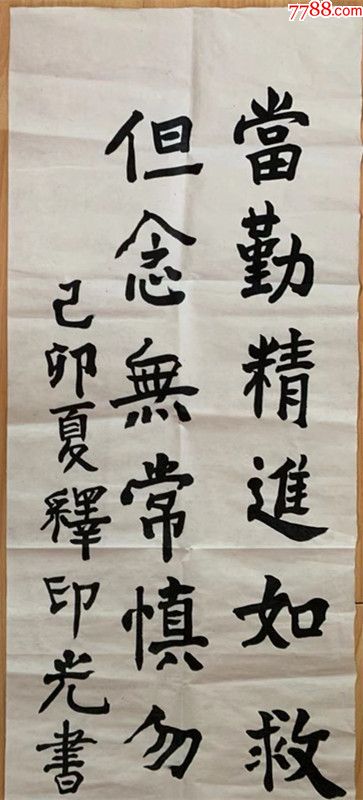 7788.com
當勤精進如救
但念無常慎勿
己卯夏釋印光書